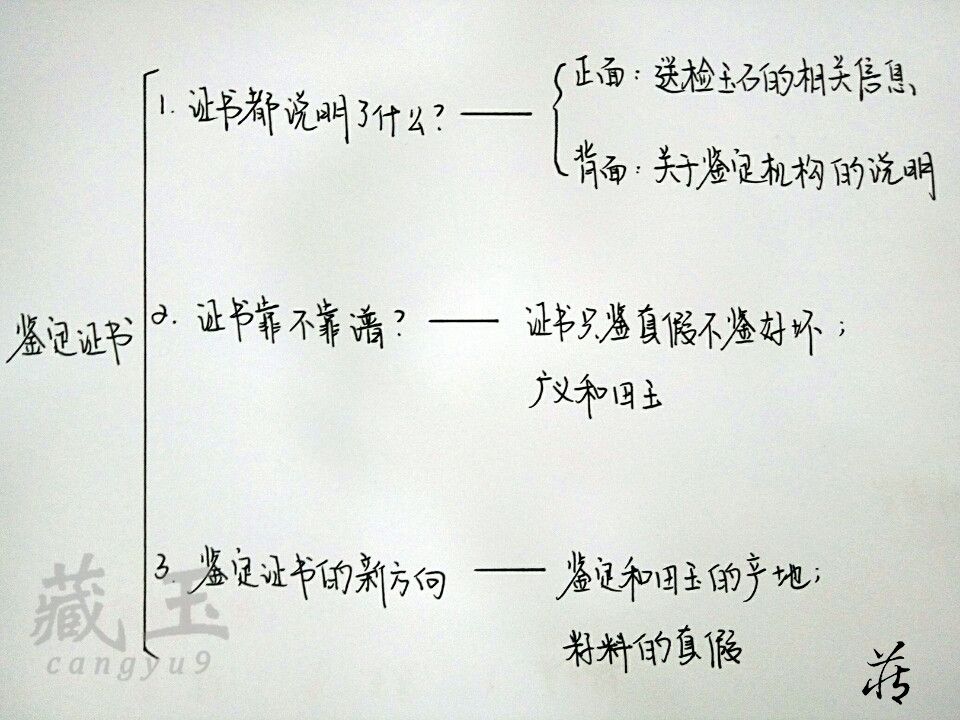 正面：送检玉石的相关信息、
1. 证书都说明了什么？
背面：关于鉴定机构的说明
鉴定证书
2. 证书靠不靠谱？
证书只鉴真假不鉴好坏；
广义和田玉
3. 鉴定证书的新方向
鉴定和田玉的产地；
籽料的真假
藏玉
cangyu9